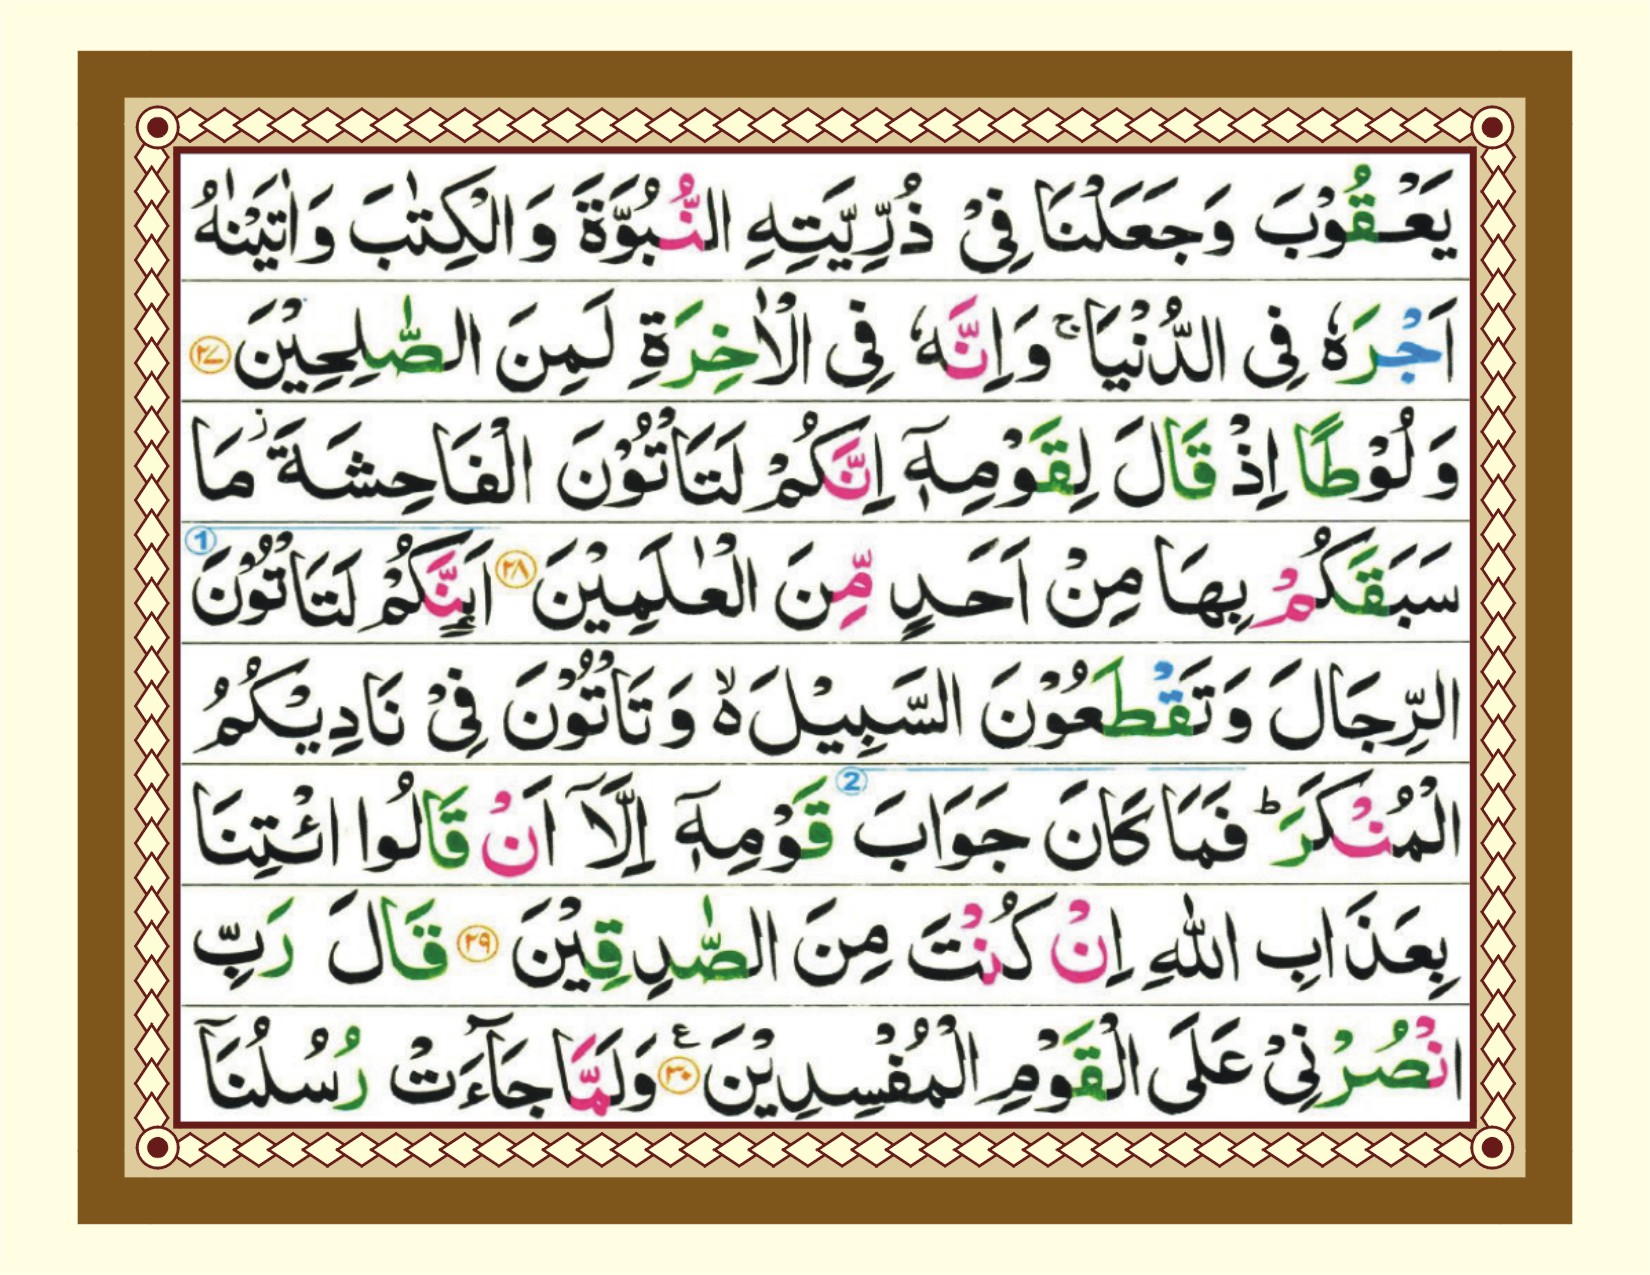 يَعْقُوْبَ وَجَعَلْنَا فِيْ ذُرِّيَّتِهِ النُّبُوَّةَ وَالْكِتٰبَ وَاٰتَيْنٰهُ
اَجْرَهٗ فِي الدُّنْيَا ۚ وَاِنَّهٗ فِي الْاٰخِرَةِ لَمِنَ الصّٰلِحِيْنَ ۝۲۷
وَلُوْطًا اِذْ قَالَ لِقَوْمِهٖۤ اِنَّكُمْ لَتَاْتُوْنَ الْفَاحِشَةَ ز مَا
سَبَقَكُمْ بِهَا مِنْ اَحَدٍ مِّنَ الْعٰلَمِيْنَ ۝۲۸ اَىِٕنَّكُمْ لَتَاْتُوْنَ 1
الرِّجَالَ وَتَقْطَعُوْنَ السَّبِيْلَ ۙ۬ وَتَاْتُوْنَ فِيْ نَادِيْكُمُ
الْمُنْكَرَ ؕ فَمَا كَانَ جَوَابَ 2 قَوْمِهٖۤ اِلَّاۤ اَنْ قَالُوا ائْتِنَا
بِعَذَابِ اللّٰهِ اِنْ كُنْتَ مِنَ الصّٰدِقِيْنَ ۝۲۹ قَالَ رَبِّ
انْصُرْنِيْ عَلَى الْقَوْمِ الْمُفْسِدِيْنَ ۝۳۰ ع وَلَمَّا جَآءَتْ رُسُلُنَاۤ